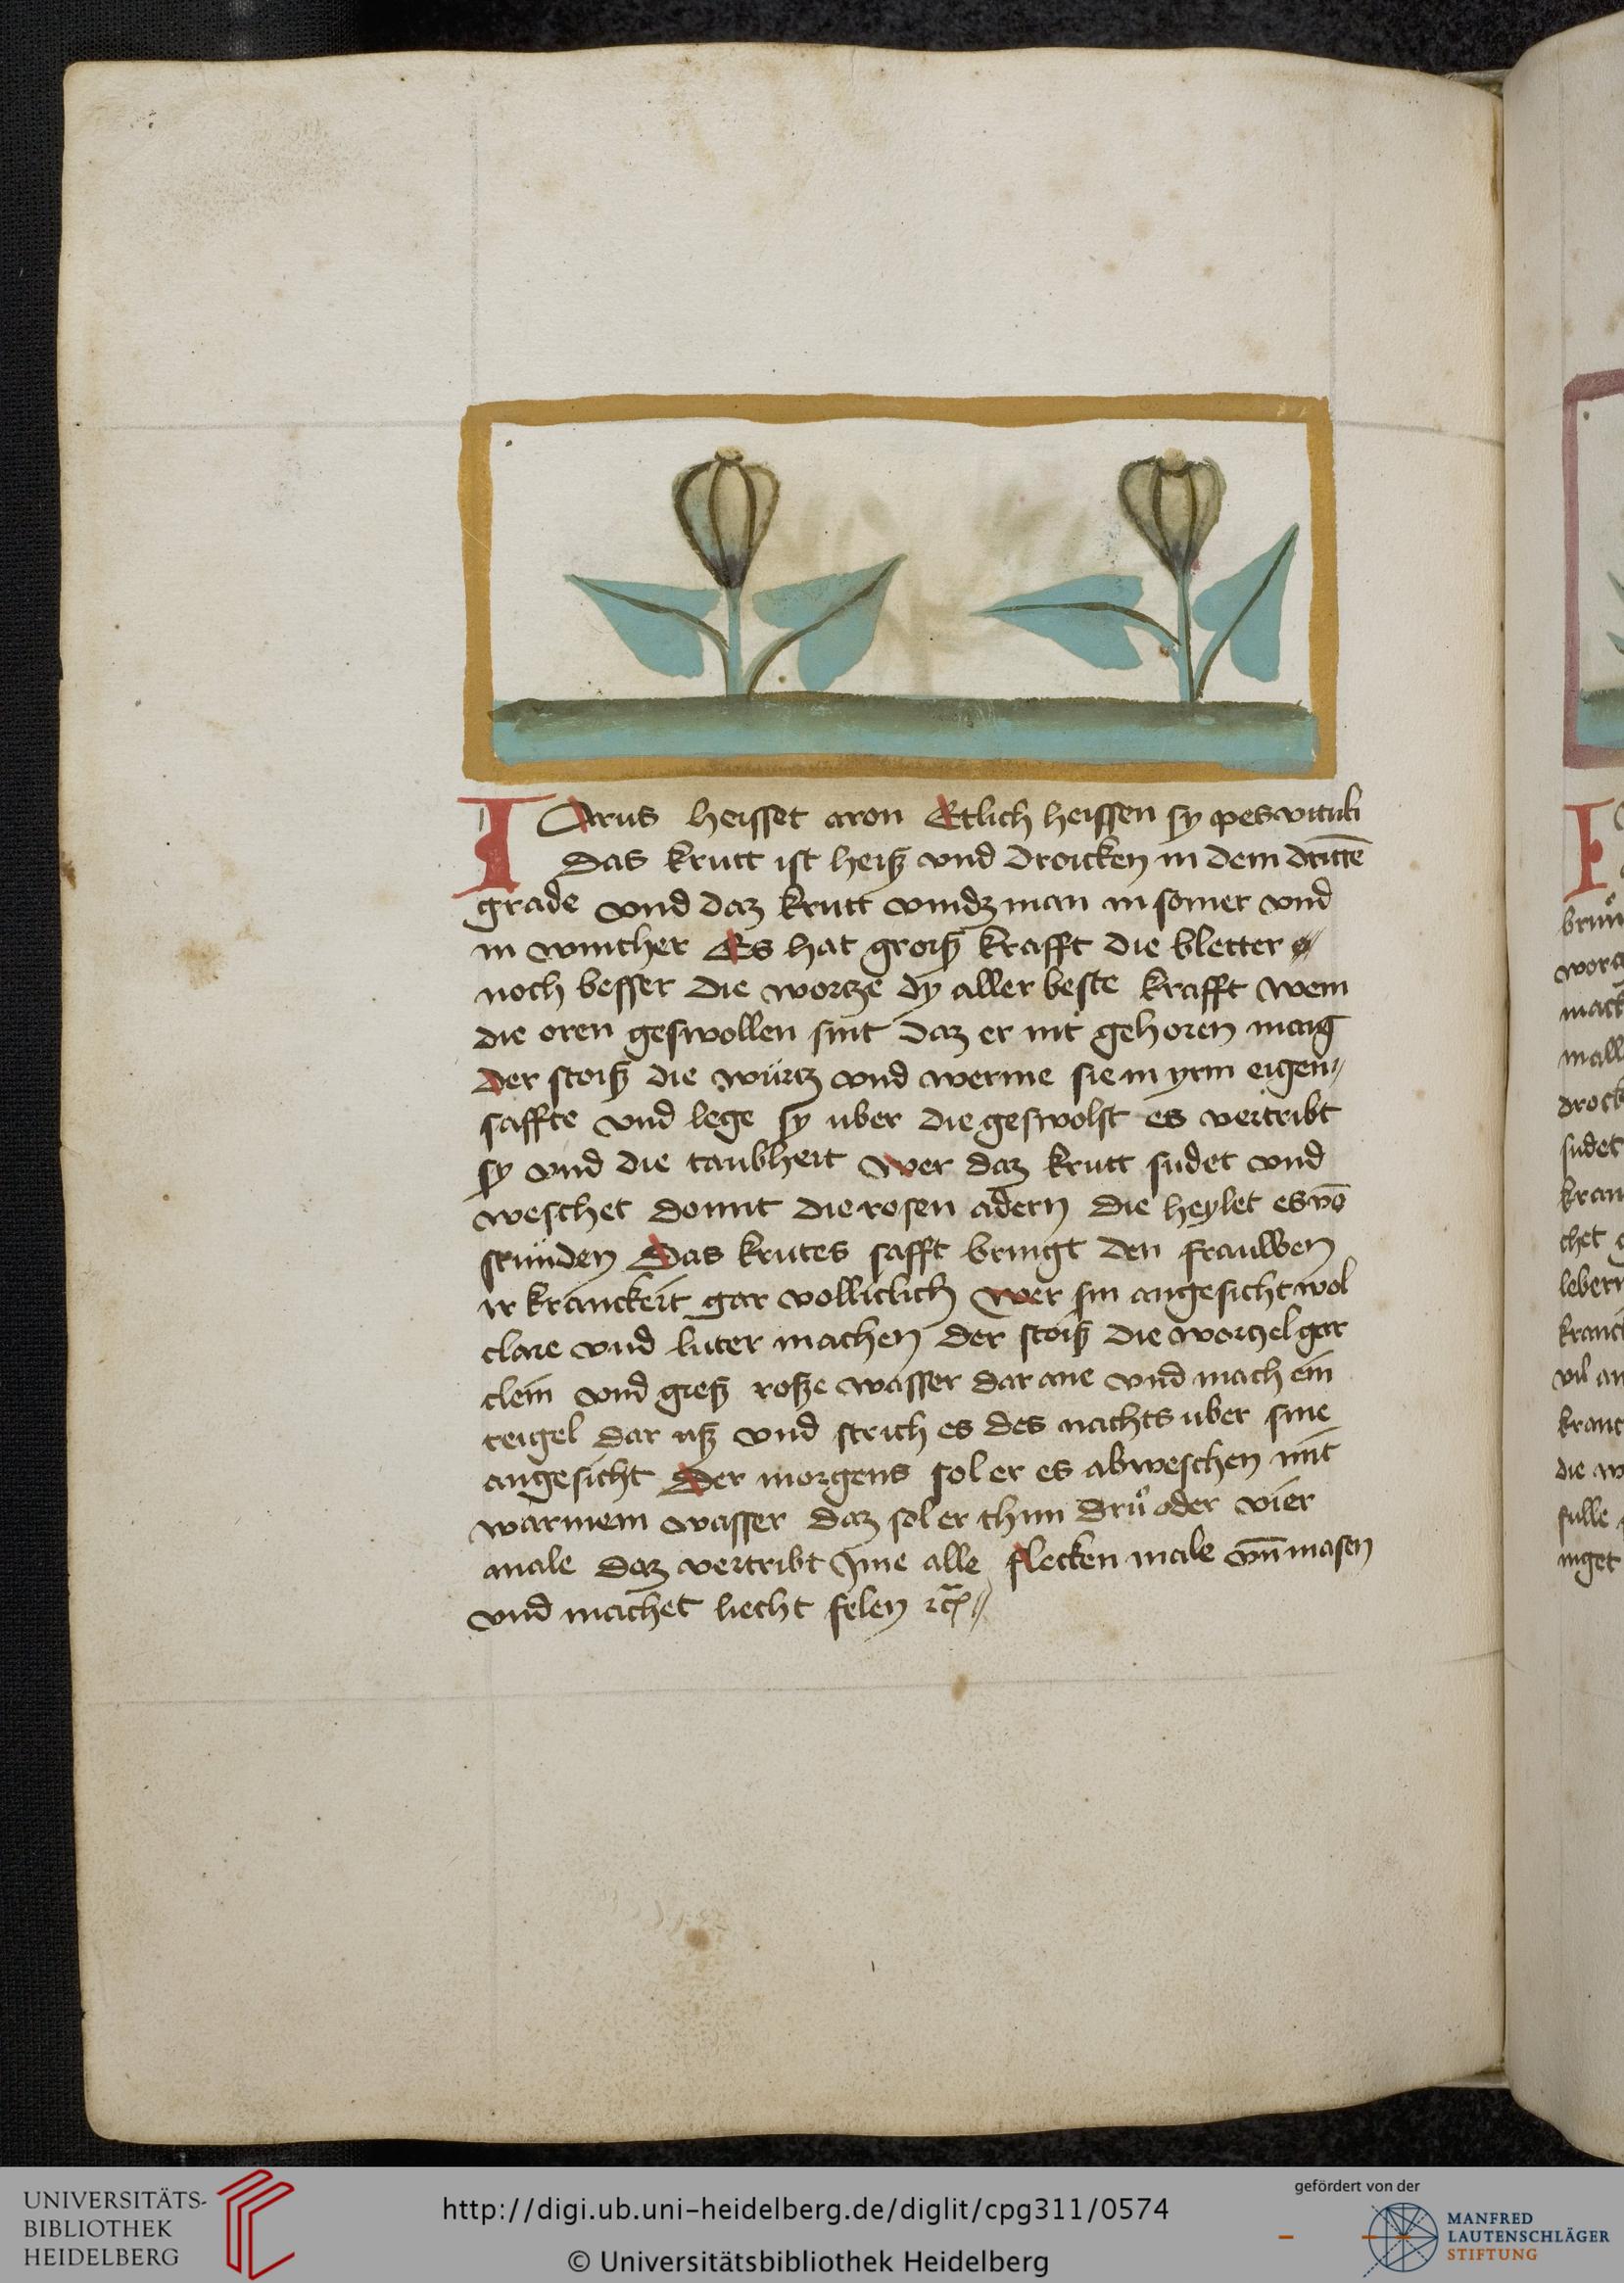 I Arus heisset aron Etlich heissen sy pes vituli
Das krutt ist heiß vnd droicken in dem dritte̅
grade vnd daz krutt vindz man in somer vnd
in winther Es hat groiß krafft die bletter
noch besser die wortze dy aller beste krafft wem
die oren geswollen sint daz er nit gehoren maig
der stoiß die würtz vnd werme sie in yrm eigen
saffte vnd lege sy uber die geswolst es vertribt
sy vnd die taubheit wer daz krutt sudet vnd
weschet domit die rosen adern die heylet es vo̅
stunden Das krutes safft bringt den frauwen
ir kranckeit gar volliclich wer sin angesicht wol
clare vnd luter machen der stoiß die wortzel gar
clein vnd gieß roße wasser dar ane vnd mach ein
teigel dar uß vnd strich es des nachts uber sine
angesicht Der morgens sol er es abweschen mit
warmem wasser daz sol er thun drů oder vier
male daz vertribt Jme alle flecken male vn̅ masen
vnd machet liecht felen
UNIVERSITÄTS-
BIBLIOTHEK
HEIDELBERG
http://digi.ub.uni-heidelberg.de/diglit/cpg311/0574
© Universitätsbibliothek Heidelberg
gefördert von der
MANFRED
LAUTENSCHLÄGER
STIFTUNG